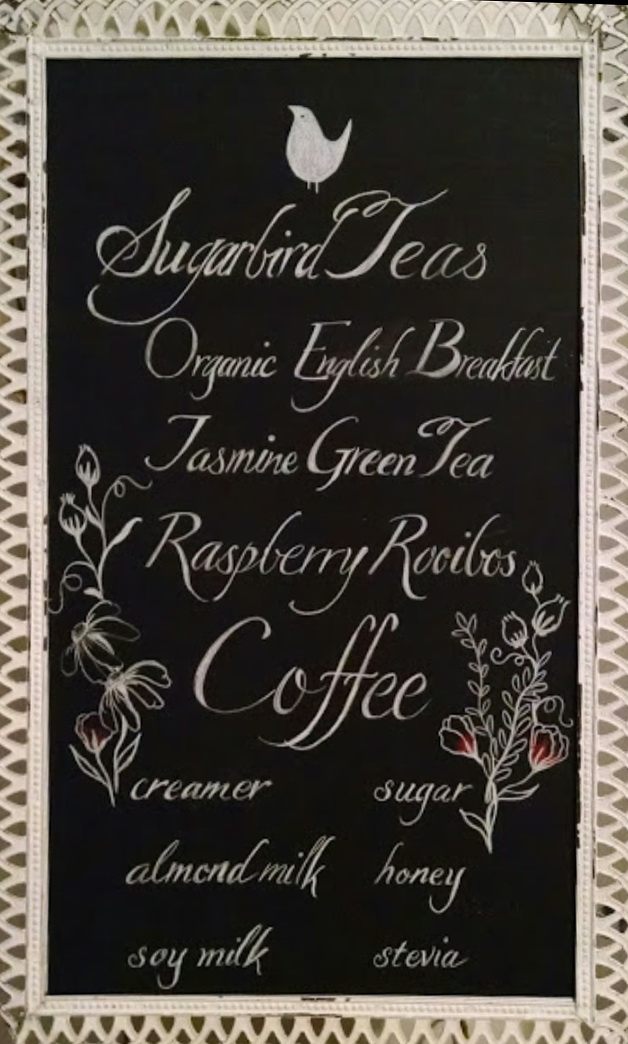 Sugarbird Teas
Organic English Breakfast
Jasmine Green Tea
Raspberry Rooibos
Coffee
creamer sugar
almond milk honey
soy milk stevia